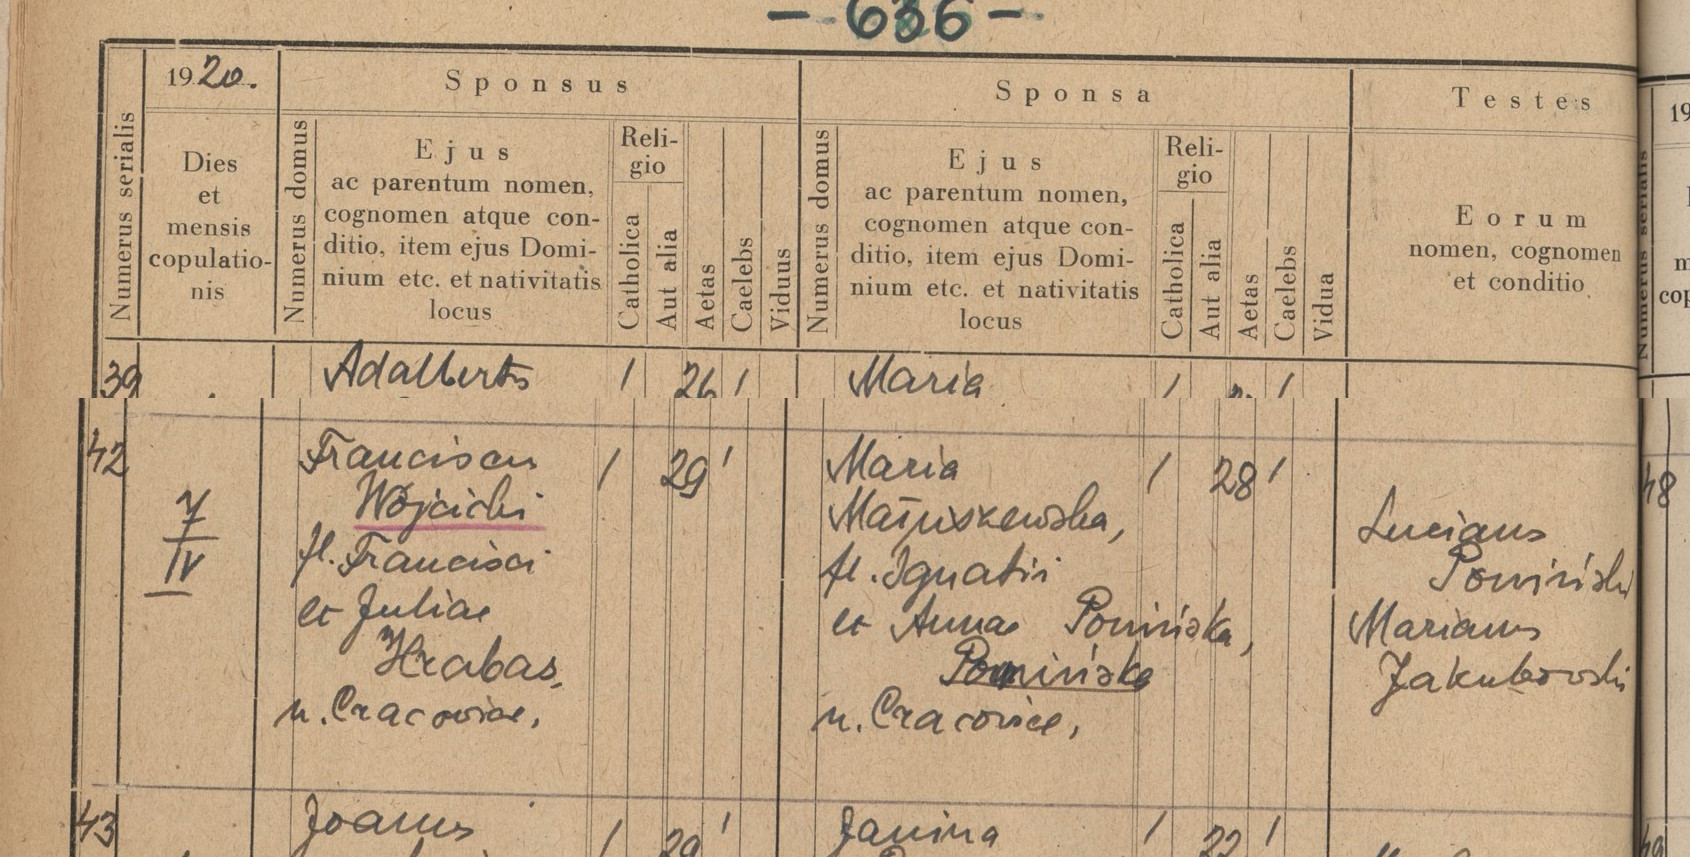 - 636 -
1920.
Sponsus
Sponsa
Testes
19
Numerus serialis
Dies
et
mensis
copulatio-
nis
Numerus domus
Ejus
ac parentum nomen,
cognomen atque con-
ditio, item ejus Domi-
nium etc. et nativitatis
locus
Reli-
gio
Catholica
Aut alia
Aetas
Caelebs
Viduus
Numerus domus
Ejus
ac parentum nomen,
cognomen atque con-
ditio, item ejus Domi-
nium etc. et nativitatis
locus
Reli-
gio
Catholica
Aut alia
Aetas
Caelebs
Vidua
Eorum
nomen, cognomen
et conditio
Numerus serialis
39 Adalbertus 1 26 1 Maria 1 1
42
7
IV
Franciscus 1 29 1
Wójcicki
fl. Francisci
et Juliae
Hrabas,
n. Cracoviae,
Maria 1 28 1
Matuszewska,
fl. Ignatii
et Annae Pomińska,
Pomińska
n. Cracoviae,
Lucianus
Pomiński
Marianus
Jakubowski
48
43 Joannes 1 29 1 Janina 1 22 1
49